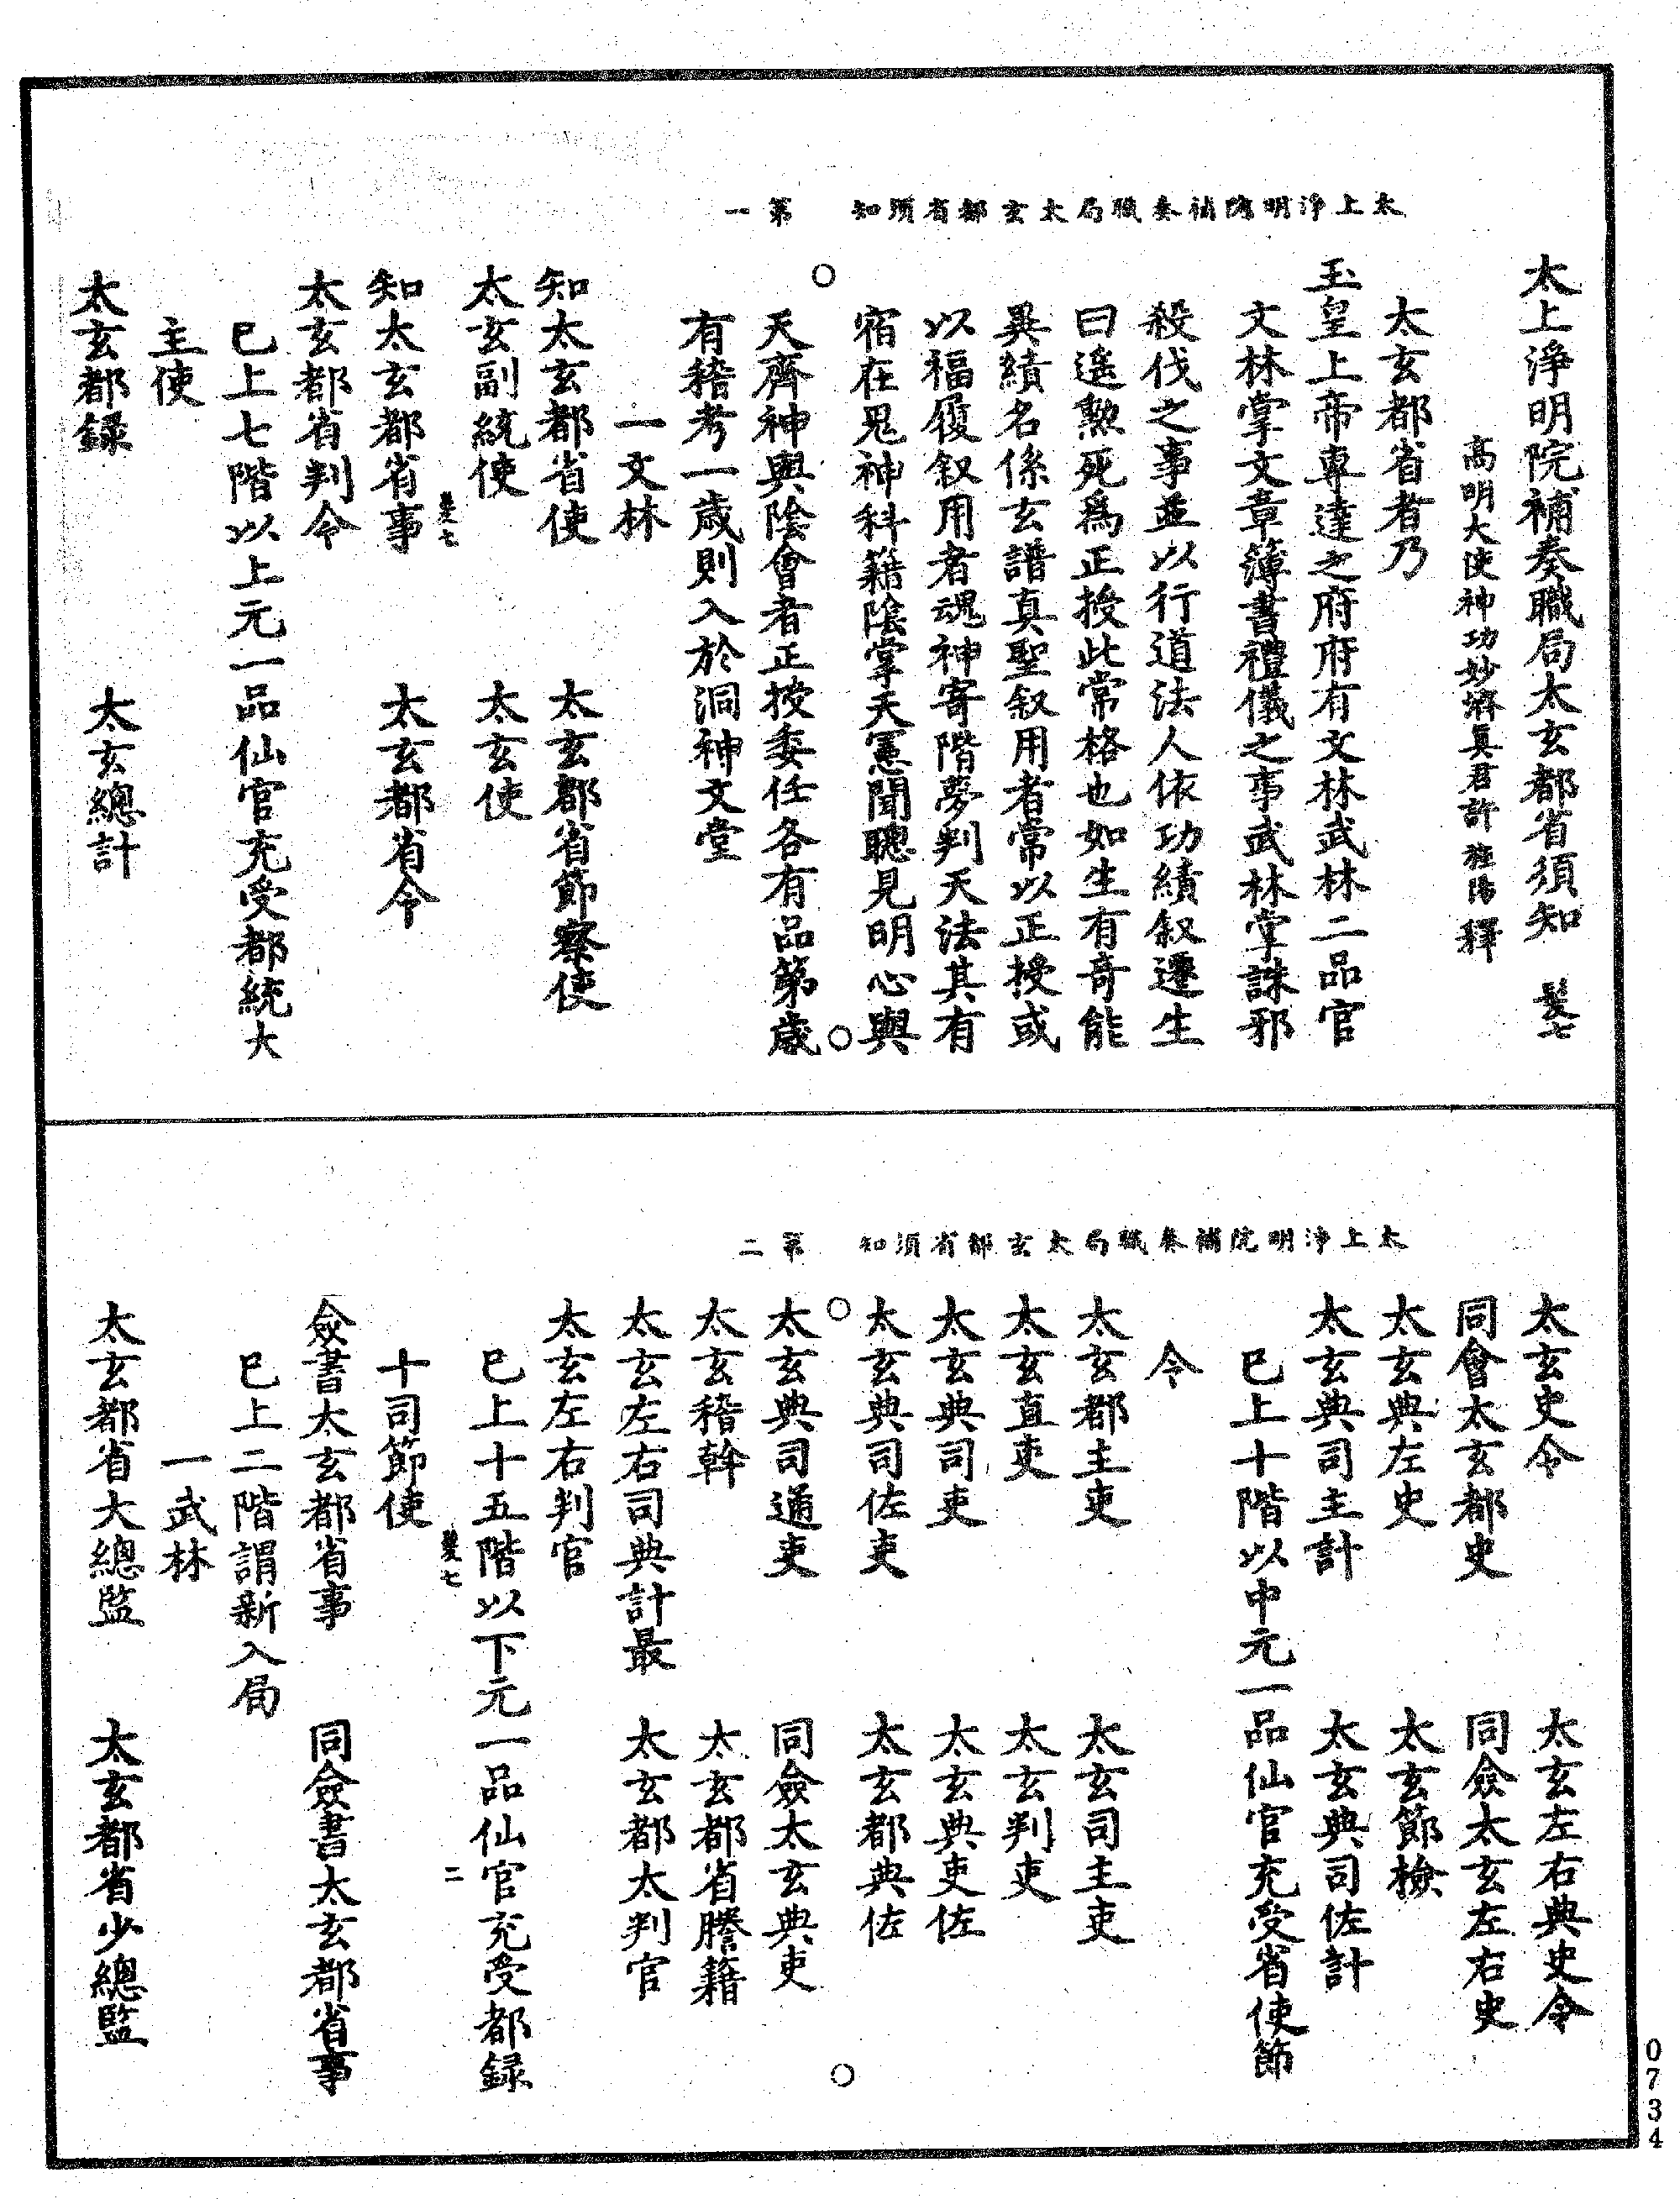 太上淨明院補奏職局太玄都省須知　第一
太上淨明院補奏職局太玄都省須知　髮七
高明大使神功妙濟真君許旌陽釋
太玄都省者乃
玉皇上帝專達之府府有文林武林二品官
文林掌文章簿書禮儀之事武林掌誅邪
殺伐之事並以行道法人依功績叙遷生
曰遙勲死爲正授此常格也如生有奇能
異績名係玄譜真聖叙用者常以正授或
以福履叙用者魂神寄階夢判天法其有
宿在鬼神科籍陰掌天憲聞聰見明心與
天齊神與陰會者正授委任各有品第歲
有稽考一歲則入於洞神文堂
一文林
知太玄都省使　太玄都省節察使
太玄副統使　太玄使
髮七
知太玄都省事　太玄都省令
太玄都省判令
巳上七階以上元一品仙官充受都統大
主使
太玄都録　太玄總計
太上淨明院補奏職局太玄都省須知　第二
太玄史令　太玄左右典史令
同會太玄都史　同僉太玄左右史
太玄典左史　太玄節檢
太玄典司主計　太玄典司佐計
巳上十階以中元一品仙官充受省使節
令
太玄都主吏　太玄司主吏
太玄直吏　太玄判吏
太玄典司吏　太玄典吏佐
太玄典司佐吏　太玄都典佐
太玄典司通吏　同僉太玄典吏
太玄稽幹　太玄都省謄籍
太玄左右司典計最　太玄都太判官
太玄左右判官
巳上十五階以下元一品仙官充受都録
髮七　二
十司節使
僉書太玄都省事　同僉書太玄都省事
巳上二階謂新入局
一武林
太玄都省大總監　太玄都省少總監
0734